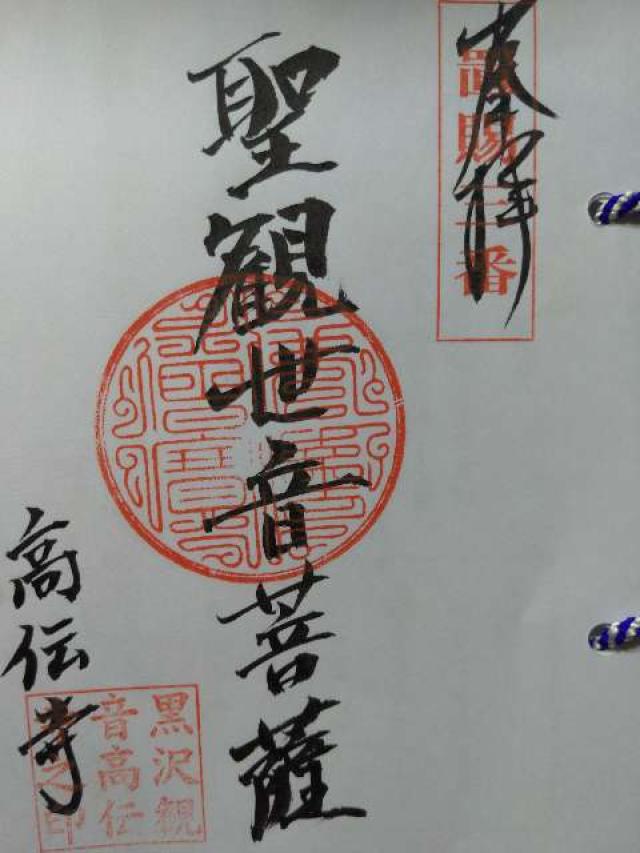 奉拝
置賜三番
聖観世音菩薩
高伝寺
黒沢観
音高伝
寺之印